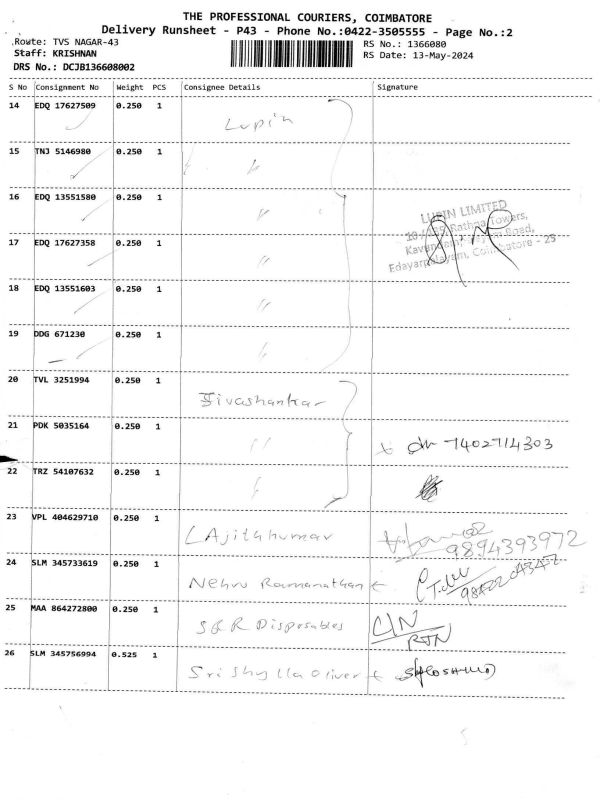 THE PROFESSIONAL COURIERS, COIMBATORE
Delivery Runsheet - P43 - Phone No.:0422-3505555 - Page No.:2
Route: TVS NAGAR-43
RS No.: 1366080
Staff: KRISHNAN
RS Date: 13-May-2024
DRS No.: DCJB136608002
S No Consignment No Weight PCS Consignee Details Signature
14 EDQ 17627509 0.250 1 Lupin
15 TNJ 5146980 0.250 1 "
16 EDQ 13551580 0.250 1 "
LUPIN LIMITED
Rathna Towers,
17 EDQ 17627358 0.250 1 "
Road,
Edayarpalayam, Coimbatore - 25
18 EDQ 13551603 0.250 1 "
19 DDG 671230 0.250 1 "
20 TVL 3251994 0.250 1 Sivashankar
21 PDK 5035164 0.250 1 " 7402714303
22 TRZ 54107632 0.250 1 "
23 VPL 404629710 0.250 1 L Ajithkumar 9894393972
24 SLM 345733619 0.250 1 Nehru Ramanathan
25 MAA 864272800 0.250 1 S & R Disposables
26 SLM 345756994 0.525 1 Sri Shylla Oliver